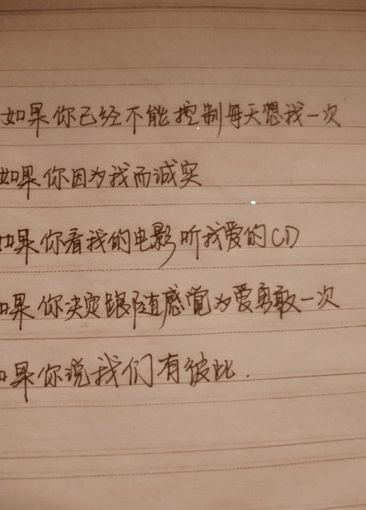 如果你已经不能控制每天想我一次
如果你因为我而诚实
如果你看我的电影 听我爱的CD
如果你决定跟随感觉为爱勇敢一次
如果你说我们有彼此.